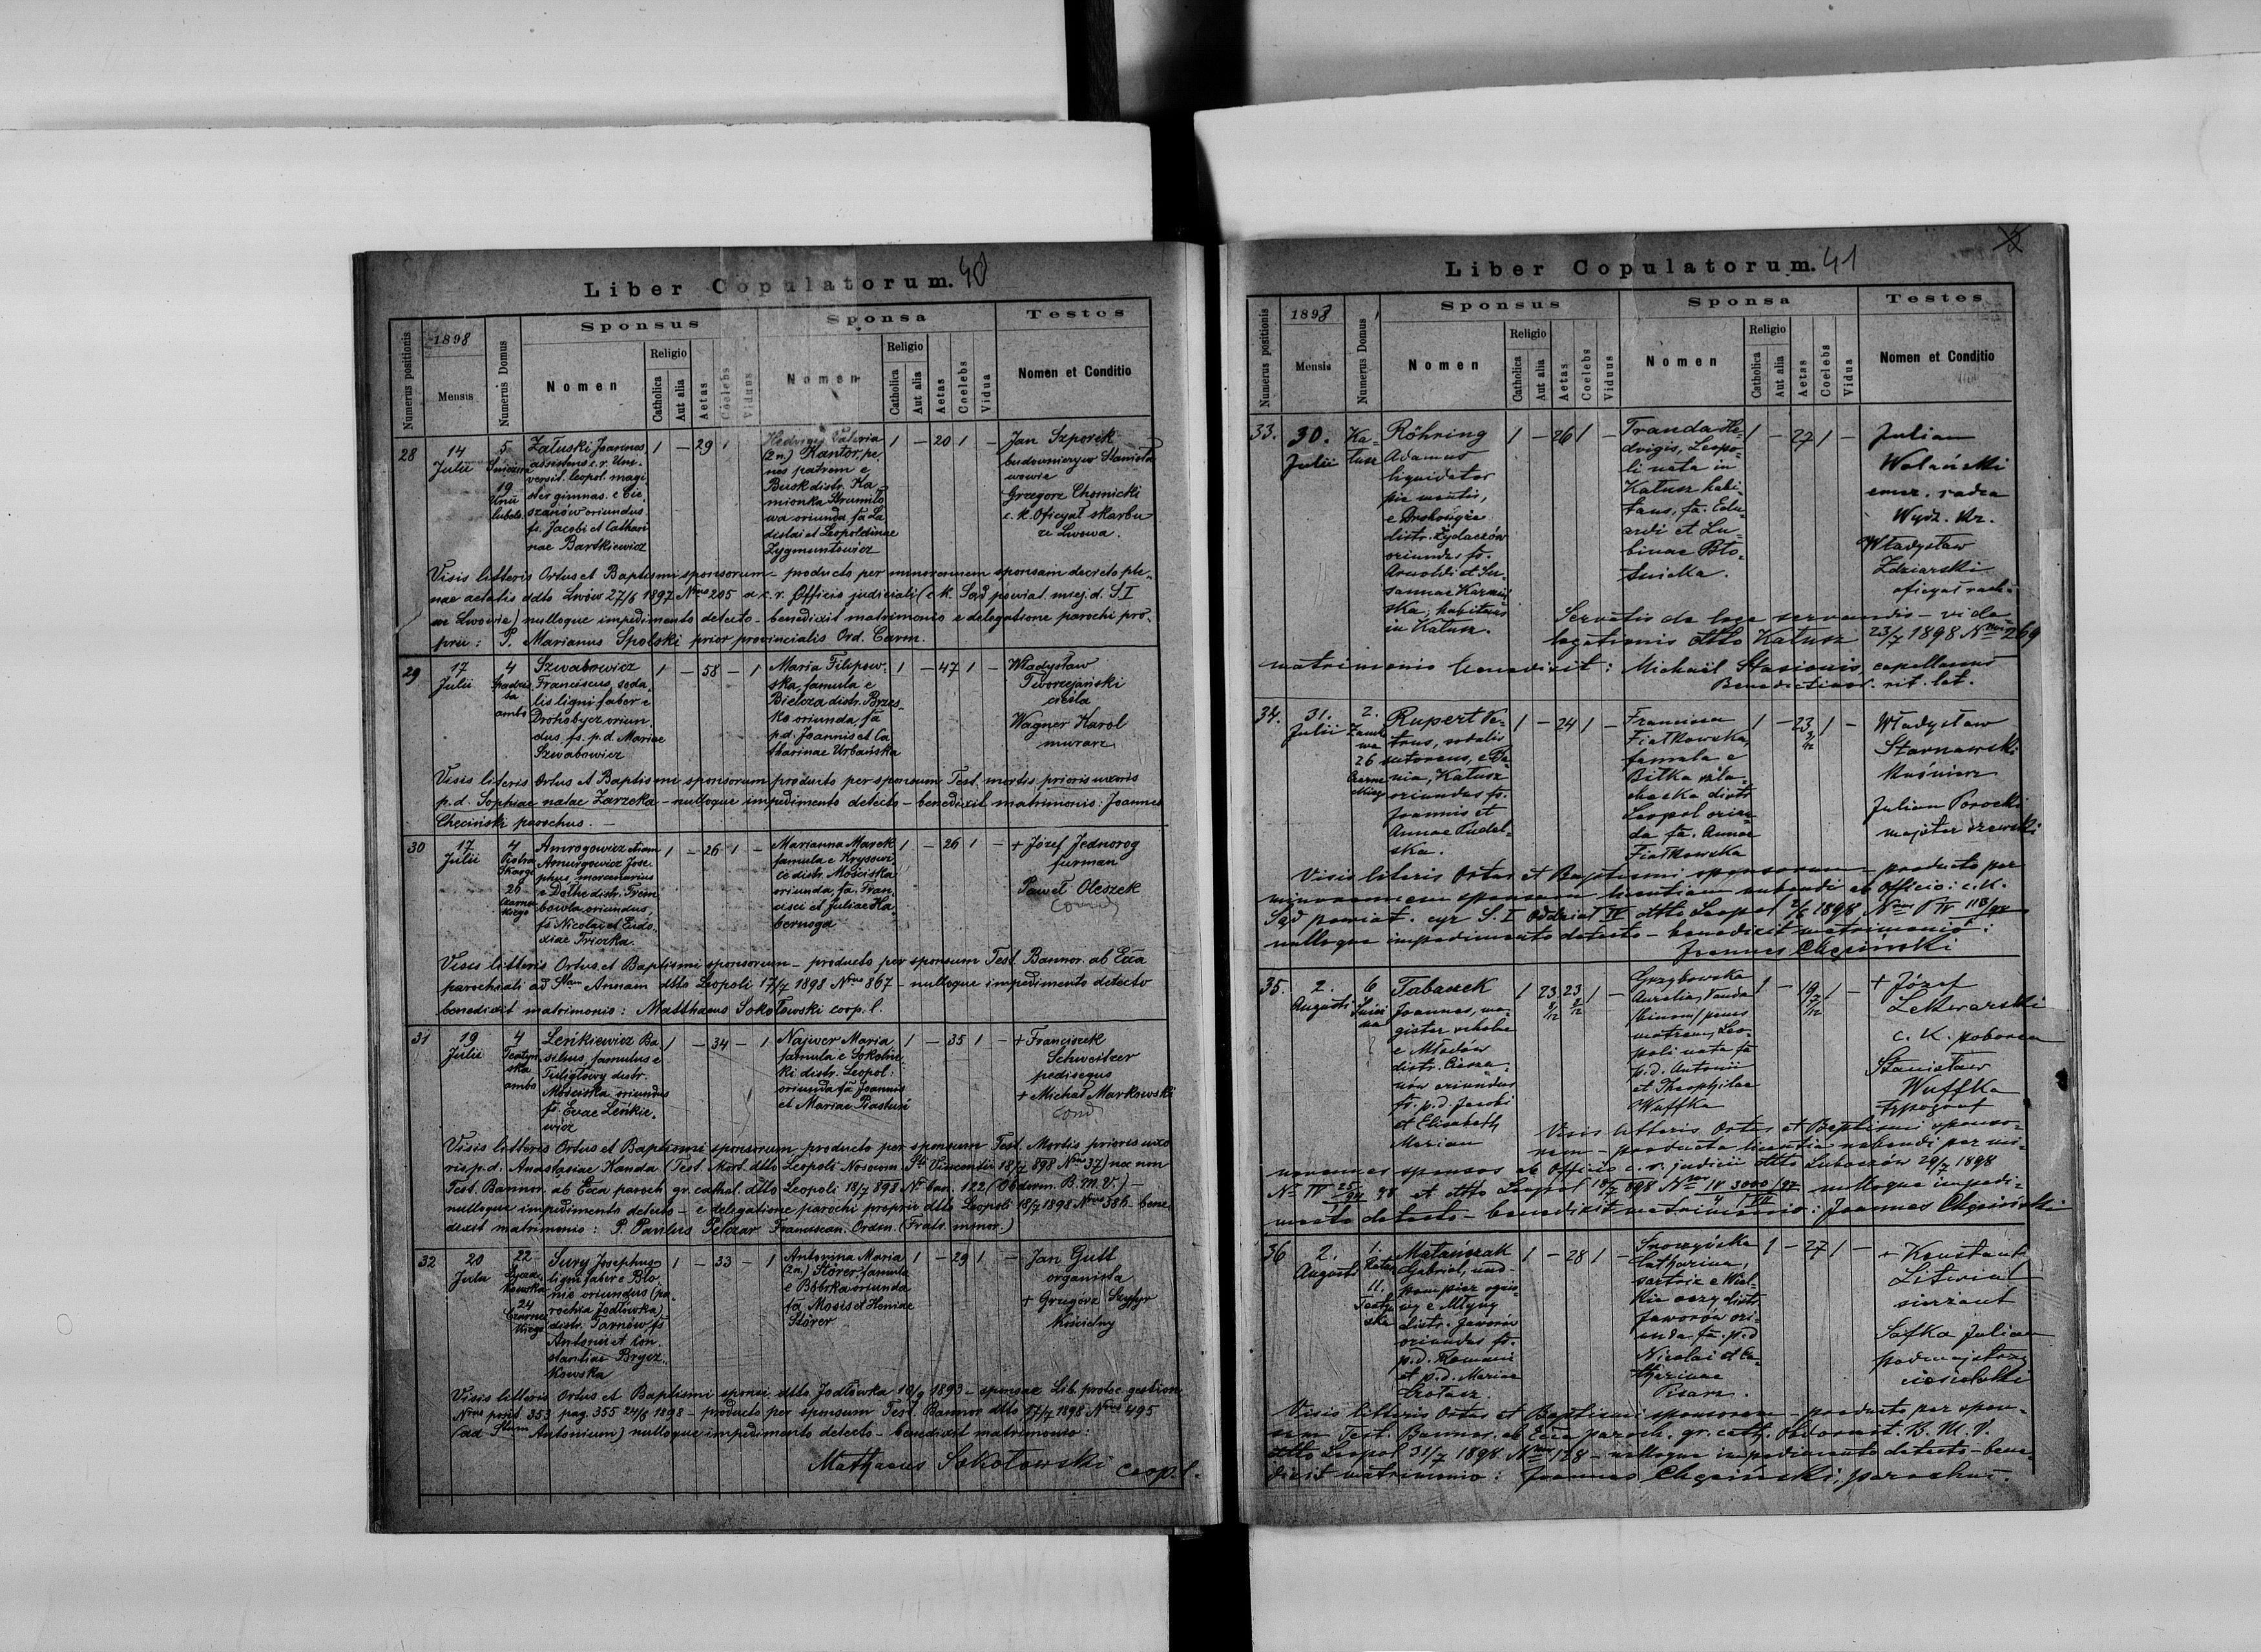 Liber Copulatorum. 40
Numerus positionis
1898
Mensis
Numerus Domus
Sponsus
Nomen
Religio
Catholica
Aut alia
Aetas
Coelebs
Viduus
Sponsa
Nomen
Religio
Catholica
Aut alia
Aetas
Coelebs
Vidua
Testes
Nomen et Conditio
28
14
Julii
5
19
Załuski Joannes
assistens c. r. Uni-
versit. leopol. magi
ster gimnas. e Cie
szanów oriundus
fs. Jacobi et Cathari
nae Bartkiewicz
1 - 29 1
Hedvigis Valeria
(2 n.) Kantor, pe-
nes patrem e
Busk distr. Ka
mionka Strumiło
wa oriunda, fa La
dislai et Leopoldinae
Zygmuntowicz
1 - 20 1 -
Jan Szporek
budowniczy w Stanisła
wowie
Grzegorz Chomicki
c. k. Oficyał skarbu
ze Lwowa.
Visis litteris Ortus et Baptismi sponsorum - producto per minorennem sponsam decreto ple-
nae aetatis ddto Lwów 27/6 1897 Nro 205 a c. r. Officio judiciali (c. k. Sąd powiat. miej. d. S I
we Lwowie) nulloque impedimento detecto - benedixit matrimonio e delegatione parochi pro-
prii: P. Marianus Spolski prior provincialis Ord. Carm.
29
17
Julii
4
ambo
Szwabowicz
Franciscus, soda
lis ligni faber e
Drohobycz oriun
dus, fs. p. d. Mariae
Szwabowicz
1 - 58 - 1
Maria Filipow-
ska, famula e
Bielcza distr. Brzes-
ko oriunda, fa
p. d. Joannis et Ca
tharinae Urbańska
1 - 47 1 -
Władysław
Tworzyjański
cieśla
Wagner Karol
murarz
Visis literis Ortus et Baptismi sponsorum producto per sponsum Test. mortis prioris uxoris
p. d. Sophiae natae Zarzeka - nulloque impedimento detecto - benedixit matrimonio: Joannes
Chęciński parochus. -
30
17
Julii
4
Piotra
Skargi
26
Czarnec
kiego
Amrogowicz etiam
Amurgowicz Jose
phus, mercenarius
e Dołhe distr. Trem
bowla oriundus,
fs Nicolai et Eudo
xiae Triczka
1 - 26 1 -
Marianna Marek
famula e Krysowi
ce distr. Mościska
oriunda, fa. Fran
cisci et Juliae Ha
bernoga
1 - 26 1 -
+ Józef Jednorog
furman
Paweł Oleszek
Visis litteris Ortus et Baptismi sponsorum - producto per sponsum Test. Bannor. ab Ecca
parochiali ad Stam Annam ddto Leopoli 17/7 1898 Nro 867 - nulloque impedimento detecto
benedixit matrimonio: Matthaeus Sokołowski coop. l.
31
19
Julii
4
Teatyń
ska
ambo
Leńkiewicz Ba
silius, famulus e
Tuligłowy distr.
Mościska oriundus
fs. Evae Leńkie-
wicz
1 - 34 - 1
Najwer Maria
famula e Sokolni
ki distr. Leopol.
oriunda fa Joannis
et Mariae Piastuń
1 - 35 1 -
+ Franciszek
Schweitzer
pedisequs
+ Michał Markowski
Visis litteris Ortus et Baptismi sponsorum, producto per sponsum Test. Mortis prioris uxo
ris p. d. Anastasiae Kanda (Test. Mort. ddto Leopoli Nosocom. Sti Vincentii 18/7 898 Nro 37) nec non
Test. Bannor. ab Ecca paroch. gr. cathol. ddto Leopoli 18/7 898 No ban. 122 (Obdorm. B. M. V.) -
nulloque impedimento detecto - e delegatione parochi proprii ddto Leopoli 18/7 1898 Nro 386 - bene
dixit matrimonio: P. Paulus Pelczar Franciscan. Ordin. (Fratr. minor.)
32
20
Julii
22
Łycza
kowska
24
Czarnec
kiego
Sury Josephus
ligni faber e Bło
nie oriundus (pa
rochia Jodłówka)
distr. Tarnów, fs
Antonii et Con
stantiae Brycz
kowska
1 - 33 - 1
Antonina Maria
(2 n.) Störer, famula
e Bóbrka oriunda
fa Mosis et Heniae
Störer
1 - 29 1 -
Jan Gutt
organista
+ Grzegórz Szyfyr
kościelny
Visis litteris Ortus et Baptismi sponsi ddto Jodłówka 10/9 1893 - sponsae Lib. protoc. gestion.
Nro posit. 353 pag. 355 24/6 1898 - producto per sponsum Test. Bannor. ddto 17/7 1898 Nro 495
(ad Stum Antonium) nulloque impedimento detecto - benedixit matrimonio:
Mathaeus Sokołowski coop. l.
Liber Copulatorum. 41
Numerus positionis
1898
Mensis
Numerus Domus
Sponsus
Nomen
Religio
Catholica
Aut alia
Aetas
Coelebs
Viduus
Sponsa
Nomen
Religio
Catholica
Aut alia
Aetas
Coelebs
Vidua
Testes
Nomen et Conditio
33.
30.
Julii
Ka-
łusz
Röhring
Adamus
liquidator
pie montis,
distr. Żydaczów
oriundus fs.
Arnoldi et Su-
sannae
habitans
in Kałusz.
1 - 26 1 -
Tranda He-
dvigis, Leopo-
li nata in
Kałusz habi-
tans, fa. Edu-
ardi et Lu-
binae Bło-
tnicka.
1 - 27 1 -
Julian
Wolański
emer. radca
Wydz. Kr.
Władysław
Zdziarski
oficyał rach.
Servatis de lege servandis - vi de-
legationis ddto Kałusz 23/7 1898 Nro 269
matrimonio benedixit: Michaël Stasionis, capellanus
Benedictinar. rit. lat.
34.
31.
Julii
2.
26
Czarnec
kiego
Rupert Pe-
trus, sodalis
sutorius, e Pa-
nia, Kałusz
oriundus fs.
Joannis et
Annae Pudeł-
ska.
1 - 24 1 -
Francisca
Fiałkowska,
famula e
Biłka szla-
checka distr.
Leopol oriun-
da fa. Annae
Fiałkowska
1 - 23 1 -
Władysław
Starnawski
kuśnierz
Julian Porocki
majster szewski
Visis literis Ortus et Baptismi sponsorum - producto per
minorennem sponsam licentiam nubendi ab Officio: c. k.
Sąd powiat. cyw. S. I Oddział IV ddto Leopol 2/6 1898 Nro P IV 113/98
nulloque impedimento detecto - benedixit matrimonio:
Joannes Chęciński
35.
2.
Augusti
6
Tabaczek
Joannes, ma-
gister scholae
e Młodów
distr. Ciesza-
nów oriundus
fs. p. d. Jacobi
et Elisabeth
Marian
Grzybowska
Aurelia, Vanda
(binom) penes
matrem, Leo-
poli nata fa
p. d. Antonii
et Theophilae
Wuffka
+ Józef
Lettwarski
c. k. poborca
Stanisław
Wuffka
typograf
Visis litteris Ortus et Baptismi sponso-
rum - producta licentia nubendi per mi-
norennes sponsos ab Officio c. r. judicii ddto Lubaczów 29/7 1898
nulloque impedi-
mento detecto - benedixit matrimonio: Joannes Chęciński
36
2.
Augusti
1.
11.
Teatyń
ska
Matańczak
Gabriel, nad-
pompier ognio-
wy e Młyny
distr. Jaworów
oriundus fs.
p. d. Romani
et p. d. Mariae
1 - 28 1 -
Catharina,
sartrix e Wiel-
kie oczy distr.
Jaworów ori-
unda fa. p. d
Nicolai et Ca-
tharinae
Pisarz.
1 - 27 1 -
+ Konstanty
sierżant
Safka Julian
podmajstrzy
ciesielski
Visis litteris Ortus et Baptismi sponsorum - producto per spon-
sum Test. Bannor. ab Ecca paroch. gr. cath. Obdormit. B. M. V.
ddto Leopol 31/7 1898 Nro 128 - nulloque impedimento detecto - bene-
dixit matrimonio: Joannes Chęciński, parochus.